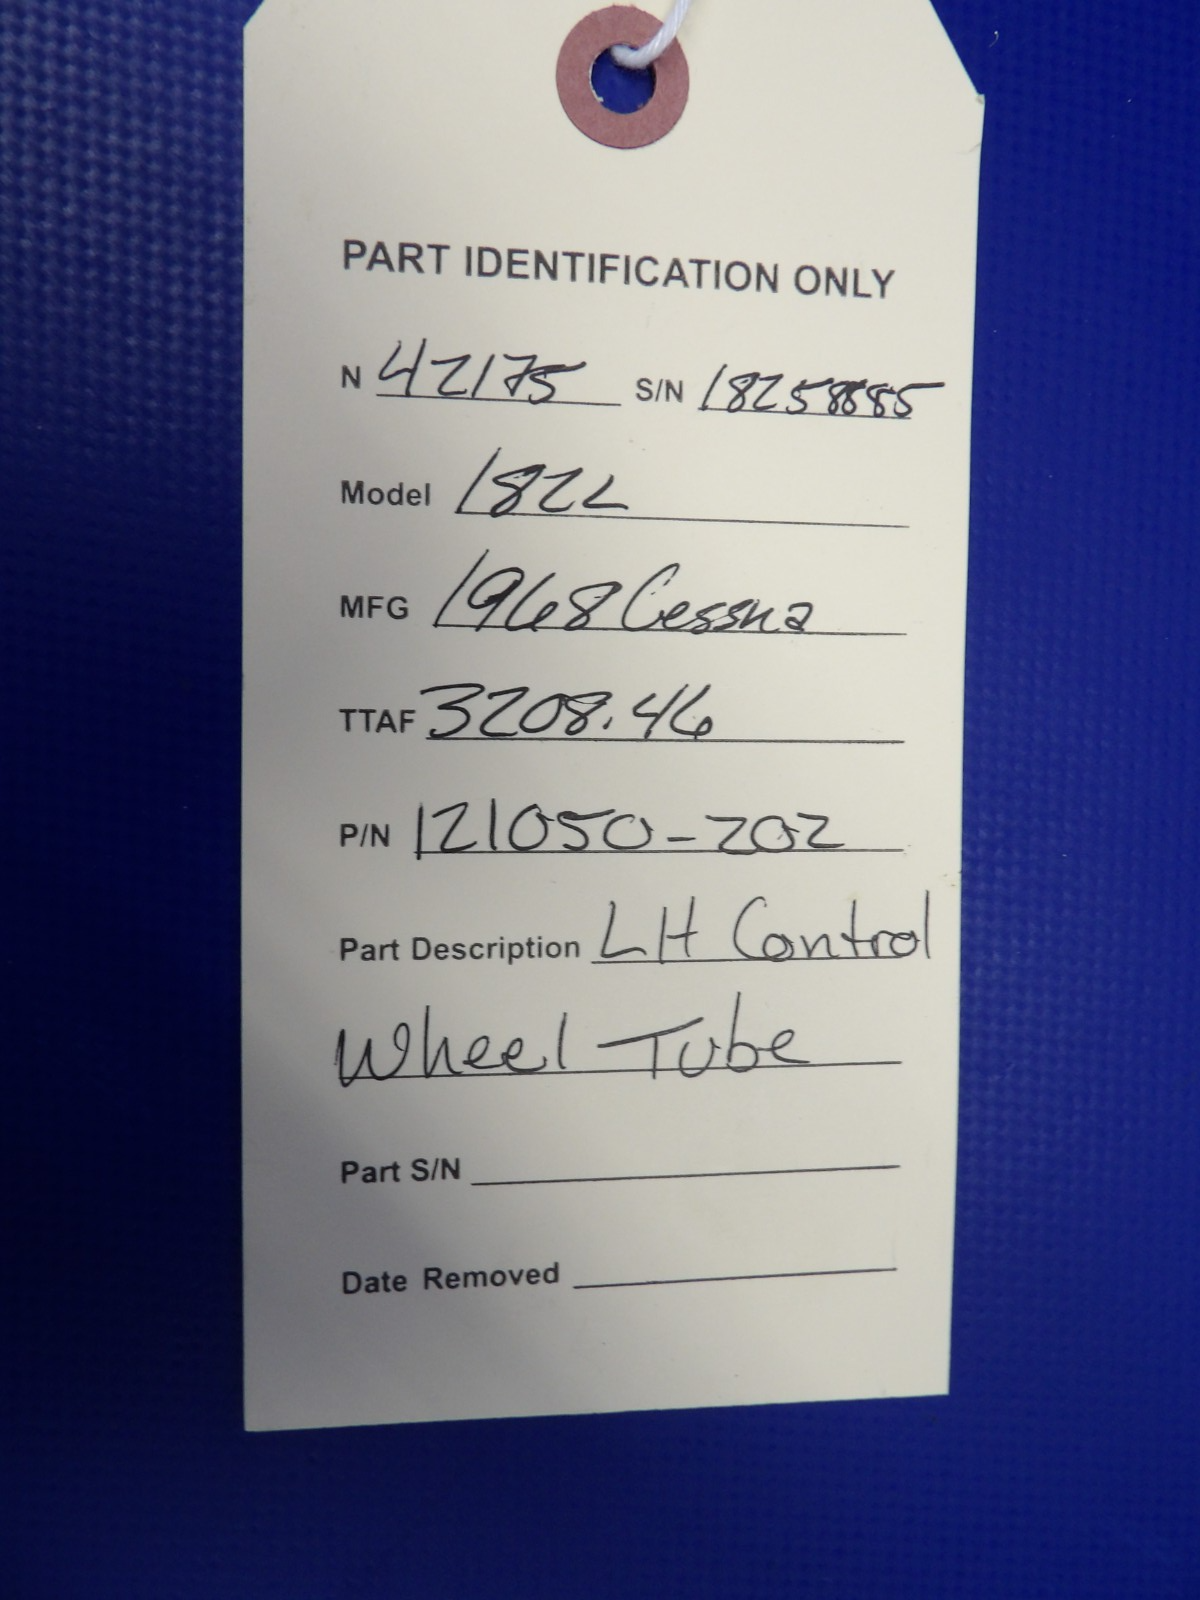 PART IDENTIFICATION ONLY
N 42175 S/N 18258885
Model 182L
MFG 1968 Cessna
TTAF 3208.46
P/N 121050-202
Part Description LH Control
Wheel Tube
Part S/N
Date Removed